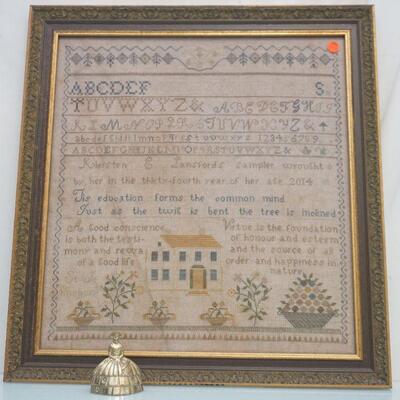 ABCDEF S
TUVWXYZ& ABCDEFGHI
KLMNOPQRSTUVWXYZ&
123456789
ABCDEFGHIJKLMNOPQRSTUVWXYZ&
Kiersten E Lansford's sampler wrought
by her in the thirty-fourth year of her age 2014
Tis education forms the common mind
Just as the twig is bent the tree is inclined
A good conscience
is both the testi-
mony and reward
of a good life
Virtue is the foundation
of honour and esteem
and the source of all
order and happiness in
nature